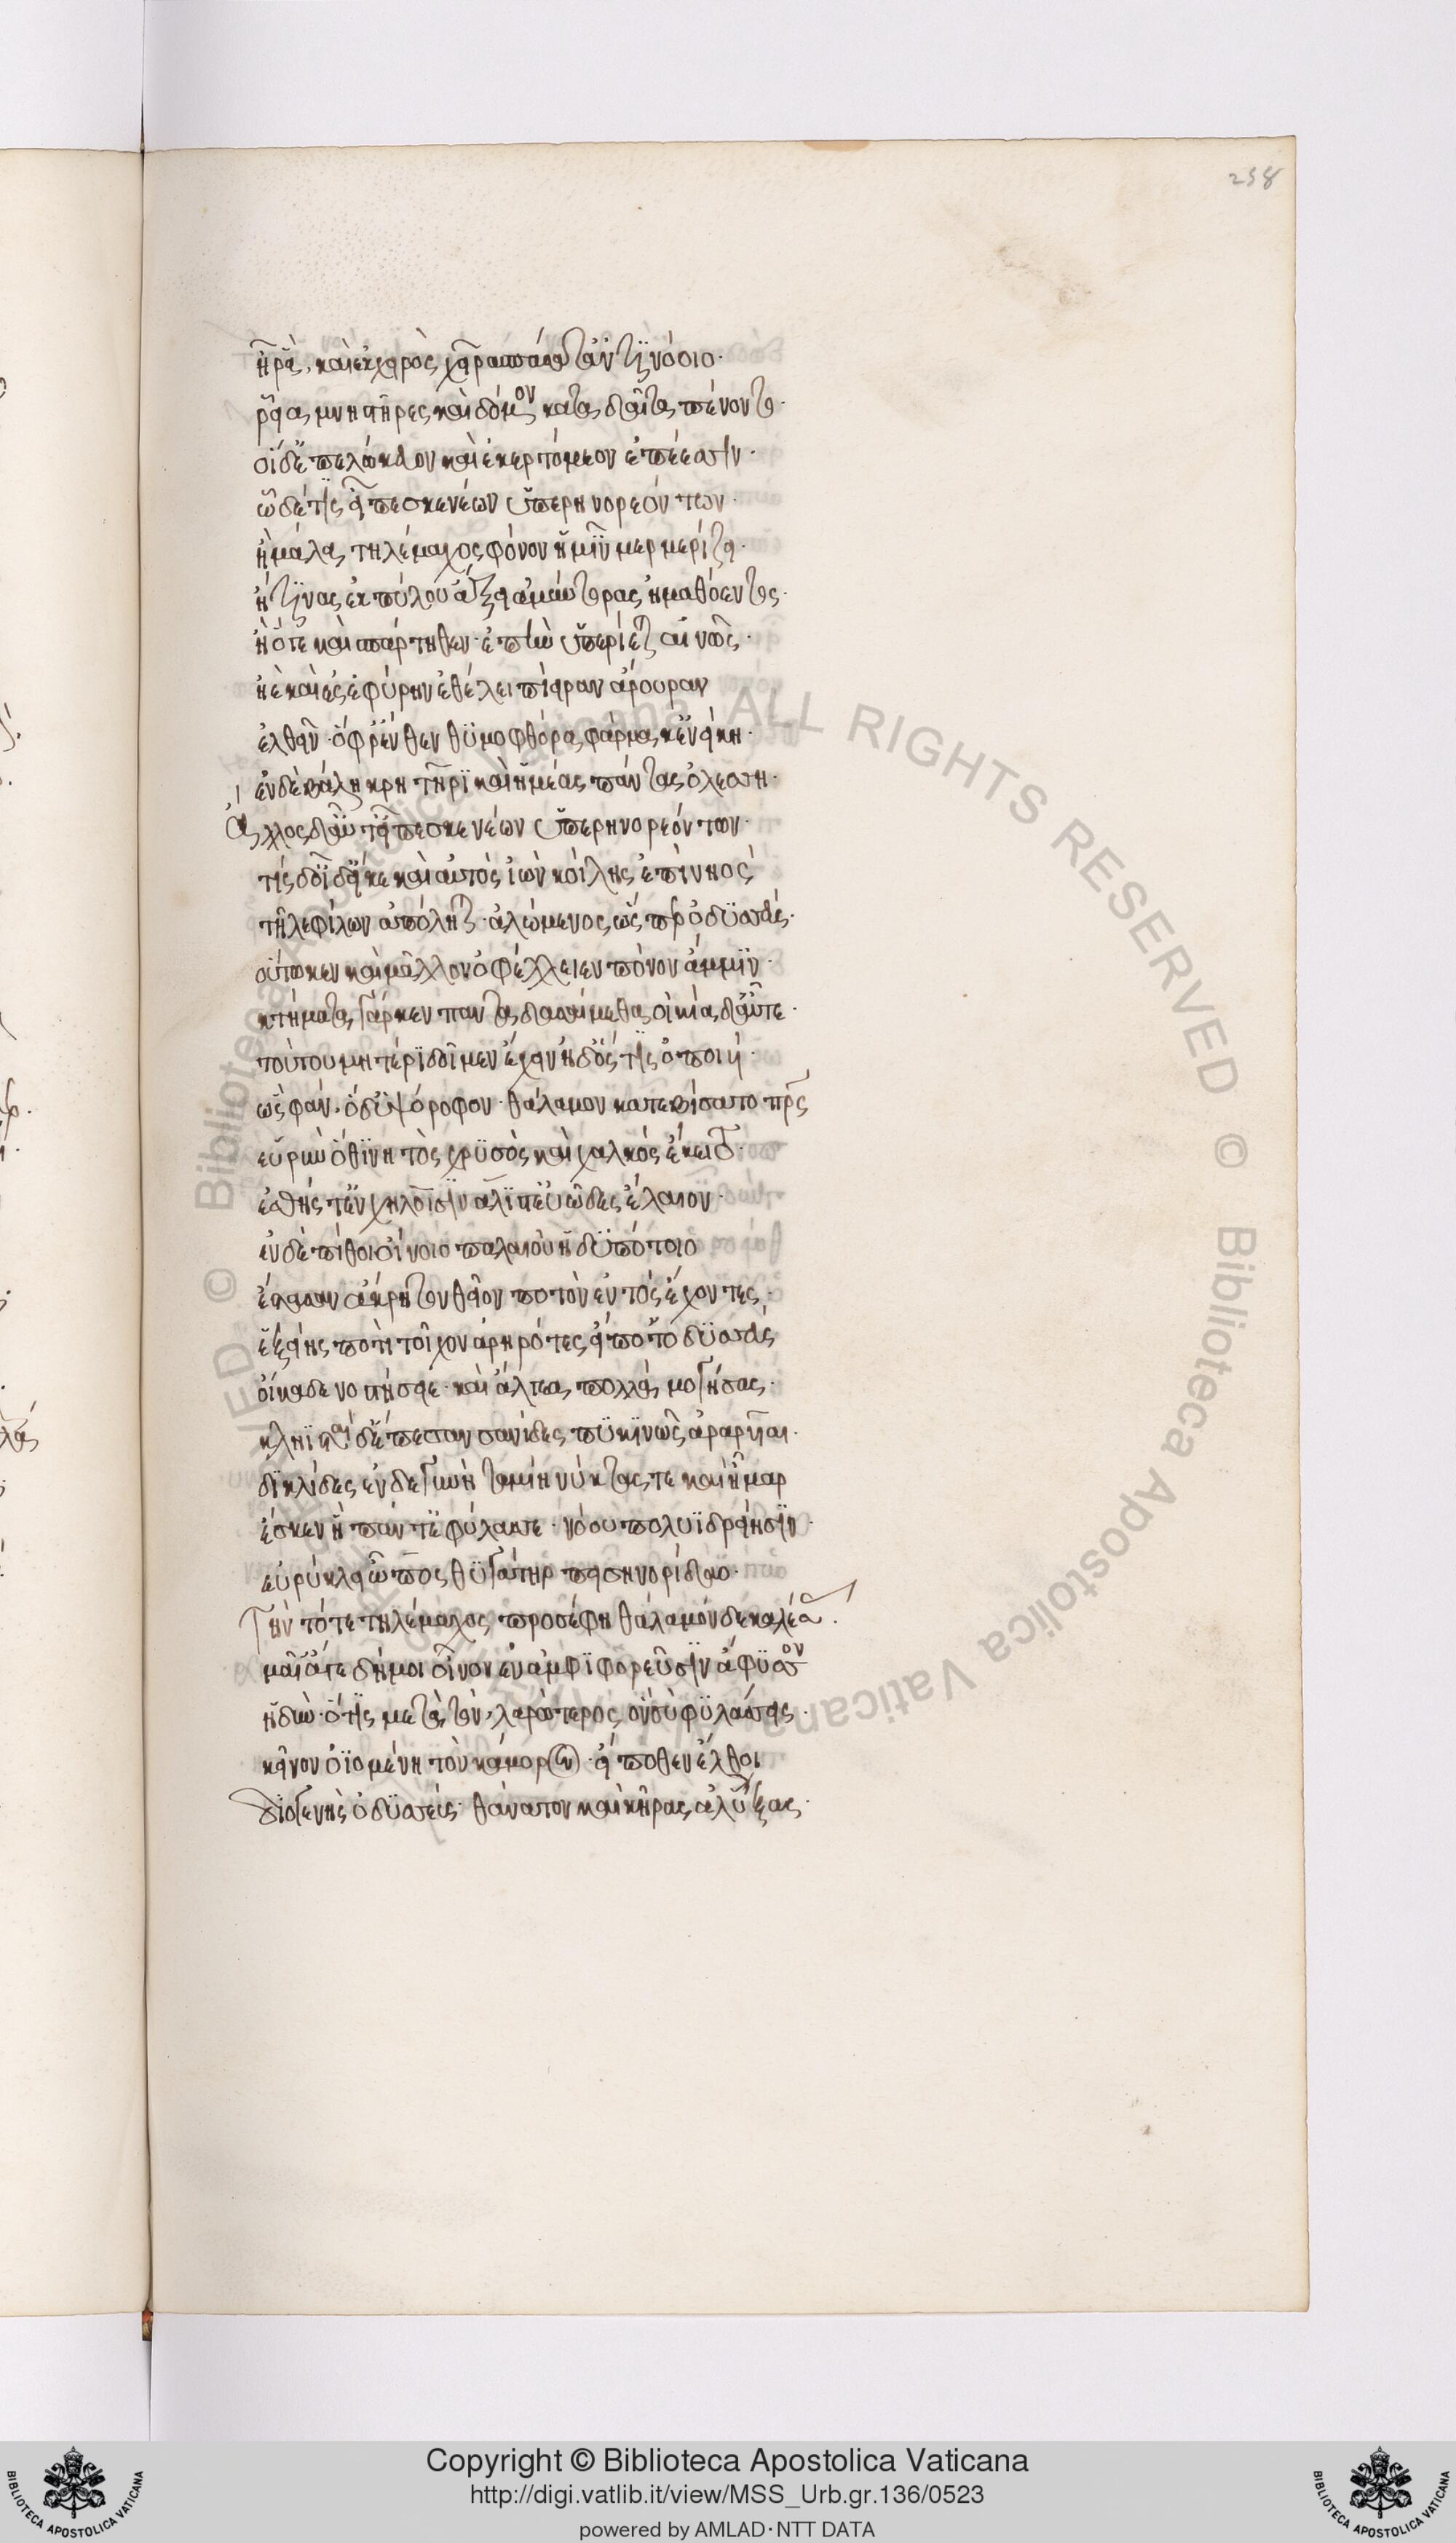 258
ἦ ῥα, καὶ ἐκ χειρὸς χεῖρα σπάσατ' ἀντινόοιο·
ῥεῖα, μνηστῆρες καὶ δόμον κατα δαῖτα πένοντο·
οἱ δ' ἐπελώβευον καὶ ἐκερτόμεον ἐπέεσσιν·
ὧδέ τις εἴπεσκε νέων ὑπερηνορεόντων·
ἦ μάλα τηλέμαχος φόνον ἡμῖν μερμερίζει·
ἤ τινας ἐκ πύλου ἄξει ἀμύντορας ἠμαθόεντος·
ἢ ὅτε καὶ σπάρτηθεν· ἐπεὶ νὺ περ ἵεται αἰνῶς·
ἠὲ καὶ εἰς ἐφύρην ἐθέλει πίειραν ἄρουραν
ἐλθεῖν· ὄφρ' ἔνθεν θυμοφθόρα φάρμακ' ἐνείκη·
ἐν δὲ βάλη κρητῆρι καὶ ἡμέας πάντας ὀλέσση·
ἄλλος δ' αὖτ' εἴπεσκε νέων ὑπερηνορεόντων·
τίς δ' οἶδ' εἴ κε καὶ αὐτὸς ἰὼν κοίλης ἐπὶ νηὸς
τῆλε φίλων ἀπόληται· ἀλώμενος, ὥς περ ὀδυσσεύς·
οὕτω κεν καὶ μᾶλλον ὀφέλλειεν πόνον ἄμμιν·
κτήματα γάρ κεν παντα δασαίμεθα, οἰκία δ' αὖτε·
τούτου μητέρι δοῖμεν ἔχειν ἠδ' ὅς τις ὀπυίη·
ὣς φάν· ὁ δ' ὑψόροφον· θάλαμον κατεβήσατο πρς
εὐρὺν ὅθι νητὸς χρυσὸς καὶ χαλκὸς ἔκειτο·
ἐσθής τ' ἐν χηλοῖσιν ἅλις τ' εὐῶδες ἔλαιον·
ἐν δὲ πίθοι οἴνοιο παλαιοῦ ἡδυπότοιο
ἕστασαν ἄκρητον θεῖον ποτὸν ἐντὸς ἔχοντες·
ἑξείης ποτὶ τοῖχον ἀρηρότες, εἴ ποτ' ὀδυσσεὺς
οἴκαδε νοστήσειε· καὶ ἄλγεα πολλὰ μογήσας·
κληισταὶ δ' ἔπεσαν σανίδες πυκινῶς ἀραρυῖαι·
δικλίδες ἐν δε γυνὴ ταμίη νύκτας τε καὶ ἦμαρ
ἔσκεν ἣ πάντ' ἐφύλασσε· νόου πολυϊδρείησιν·
εὐρύκλει' ὦπος θυγάτηρ πεισηνορίδαο·
Τὴν τότε τηλέμαχος προσέφη θάλαμόνδε καλέσσας·
μαῖ' ἄγε δή μοι οἶνον ἐν ἀμφιφορεῦσιν ἄφυσσον
ἡδὺν· ὅτις μετὰ τὸν, λαρώτερος ὃν σὺ φυλάσσεις·
κεῖνον ὀϊομένη τὸν κάμορον· εἴ ποθεν ἔλθοι
διογενὴς ὀδυσσεὺς· θάνατον καὶ κῆρας ἀλύξας·
Copyright © Biblioteca Apostolica Vaticana
http://digi.vatlib.it/view/MSS_Urb.gr.136/0523
powered by AMLAD·NTT DATA